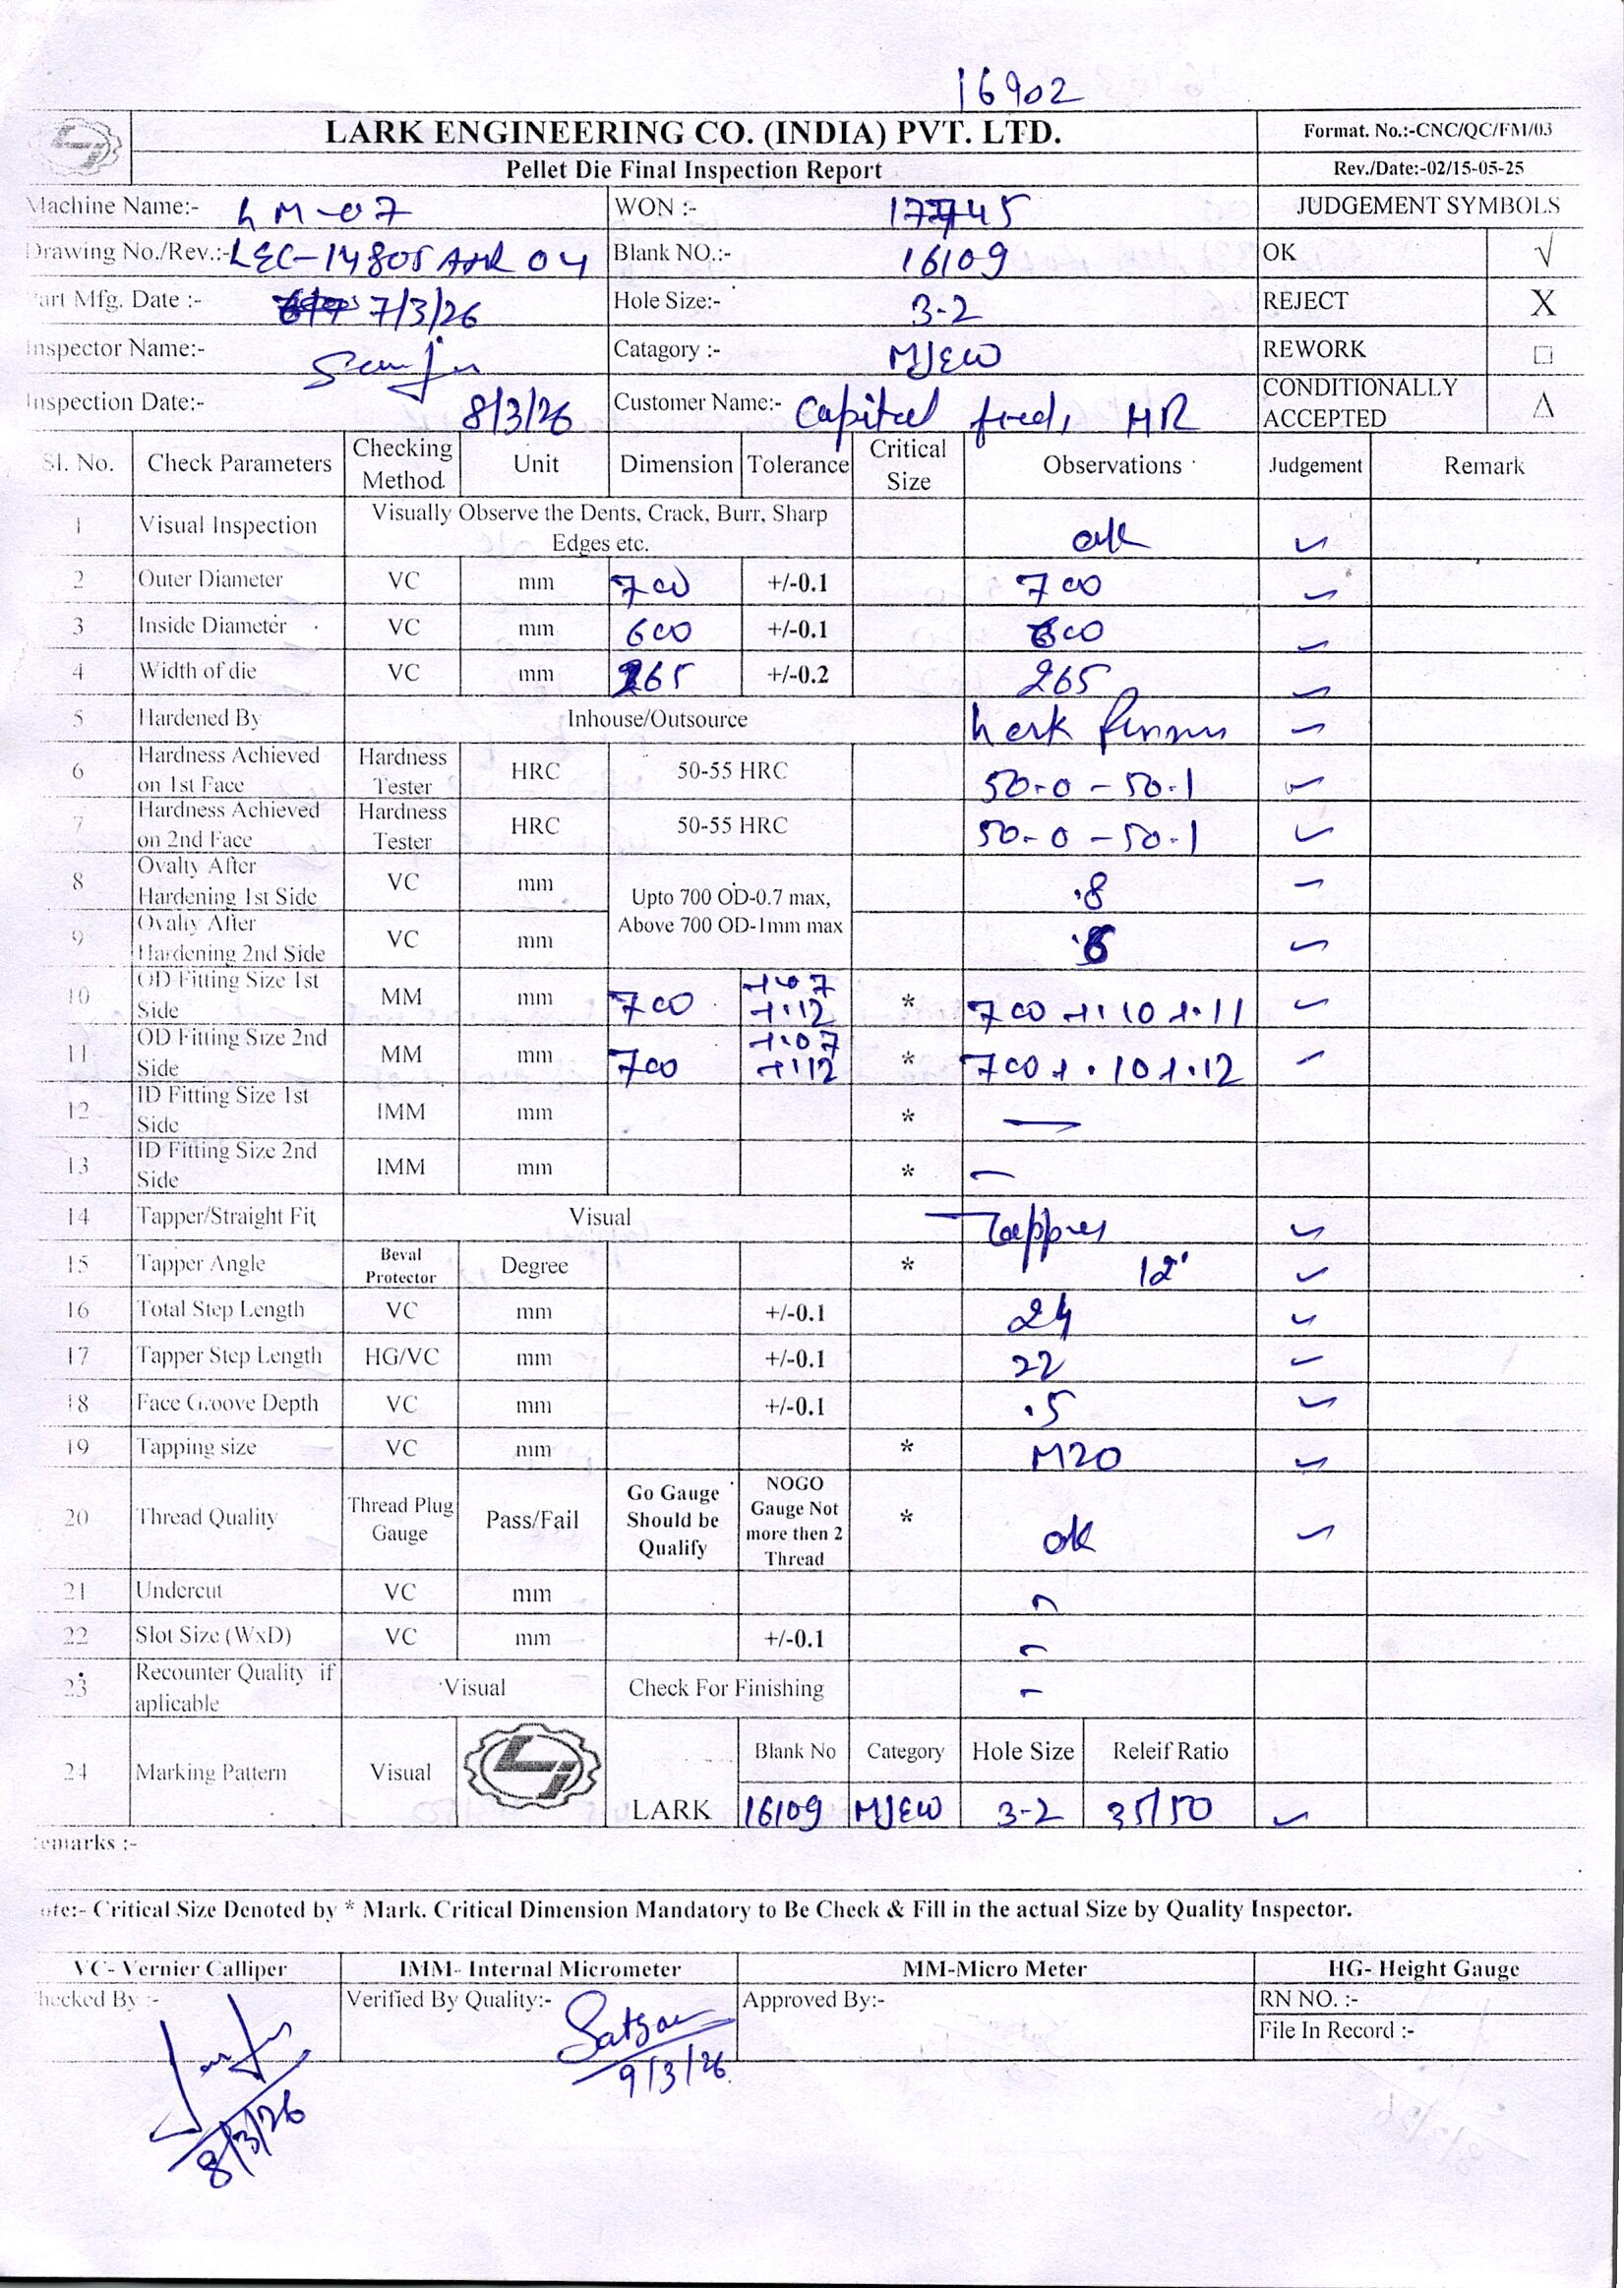 16902
LARK ENGINEERING CO. (INDIA) PVT. LTD. Format. No.:-CNC/QC/FM/03
Pellet Die Final Inspection Report Rev./Date:-02/15-05-25
Machine Name:- LM-07 WON :- JUDGEMENT SYMBOLS
Drawing No./Rev.:- LEC-14805 04 Blank NO.:- 16109 OK √
Part Mfg. Date :- 7/3/26 Hole Size:- 3.2 REJECT X
Inspector Name:- Catagory :- MJEW REWORK □
Inspection Date:- 8/3/26 Customer Name:- Capital feed, HR CONDITIONALLY ACCEPTED Δ
Sl. No. Check Parameters Checking Method Unit Dimension Tolerance Critical Size Observations Judgement Remark
1 Visual Inspection Visually Observe the Dents, Crack, Burr, Sharp Edges etc. ok ✓
2 Outer Diameter VC mm 700 +/-0.1 700 ✓
3 Inside Diameter VC mm 600 +/-0.1 600 ✓
4 Width of die VC mm 265 +/-0.2 265 ✓
5 Hardened By Inhouse/Outsource ✓
6 Hardness Achieved on 1st Face Hardness Tester HRC 50-55 HRC 50.0 - 50.1 ✓
7 Hardness Achieved on 2nd Face Hardness Tester HRC 50-55 HRC 50.0 - 50.1 ✓
8 Ovalty After Hardening 1st Side VC mm Upto 700 OD-0.7 max, Above 700 OD-1mm max .8 ✓
9 Ovalty After Hardening 2nd Side VC mm ✓
10 OD Fitting Size 1st Side MM mm 700 +.07 +.12 * 700 +.10 +.11 ✓
11 OD Fitting Size 2nd Side MM mm 700 +.07 +.12 * 700 +.10 +.12 ✓
12 ID Fitting Size 1st Side IMM mm * —
13 ID Fitting Size 2nd Side IMM mm * —
14 Tapper/Straight Fit Visual Tapper ✓
15 Tapper Angle Beval Protector Degree * 12° ✓
16 Total Step Length VC mm +/-0.1 24 ✓
17 Tapper Step Length HG/VC mm +/-0.1 22 ✓
18 Face Groove Depth VC mm +/-0.1 .5 ✓
19 Tapping size VC mm * M20 ✓
20 Thread Quality Thread Plug Gauge Pass/Fail Go Gauge Should be Qualify NOGO Gauge Not more then 2 Thread * ok ✓
21 Undercut VC mm -
22 Slot Size (WxD) VC mm +/-0.1 -
23 Recounter Quality if aplicable Visual Check For Finishing -
24 Marking Pattern Visual LARK Blank No Category Hole Size Releif Ratio
16109 MJEW 3.2 35/50 ✓
Remarks :-
Note:- Critical Size Denoted by * Mark. Critical Dimension Mandatory to Be Check & Fill in the actual Size by Quality Inspector.
VC- Vernier Calliper IMM- Internal Micrometer MM-Micro Meter HG- Height Gauge
Checked By :- Verified By Quality:- Approved By:- RN NO. :-
File In Record :-
9/3/26
8/3/26